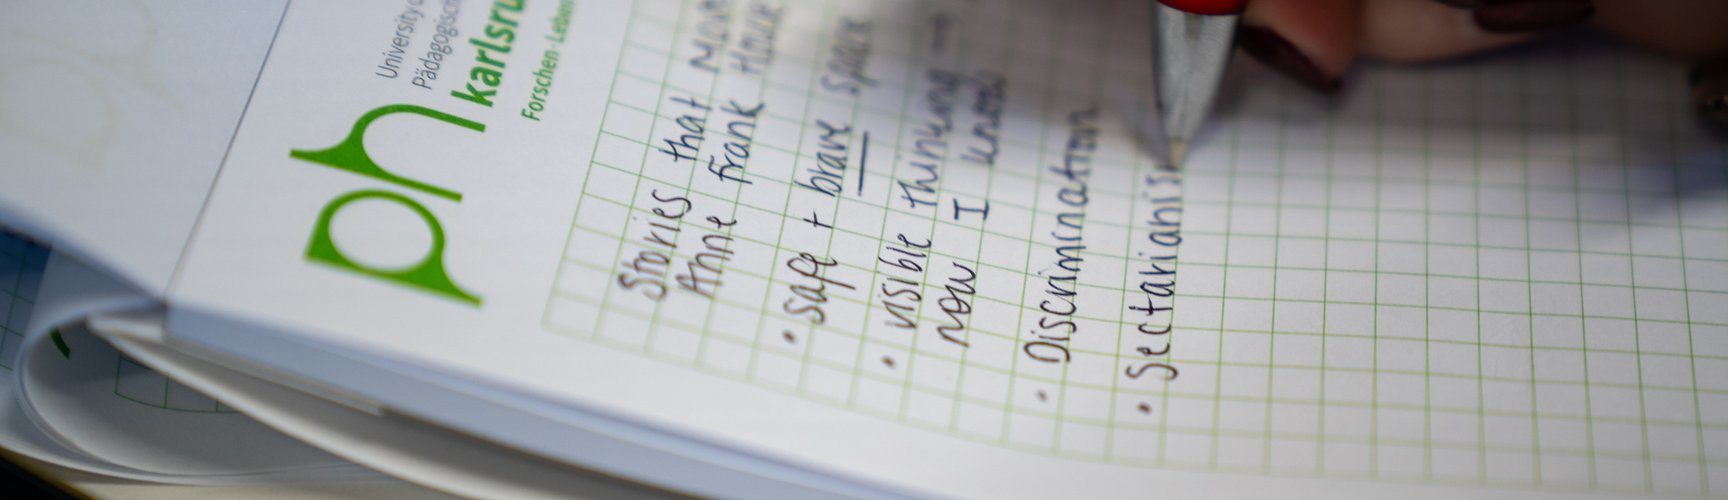 ph
University
Pädagogisc
karlsru
Forschen·Leben
Stories that
Anne Frank House
• safe + brave space
• visible thinking →
now I know
• Discrimination
• Sectarianism